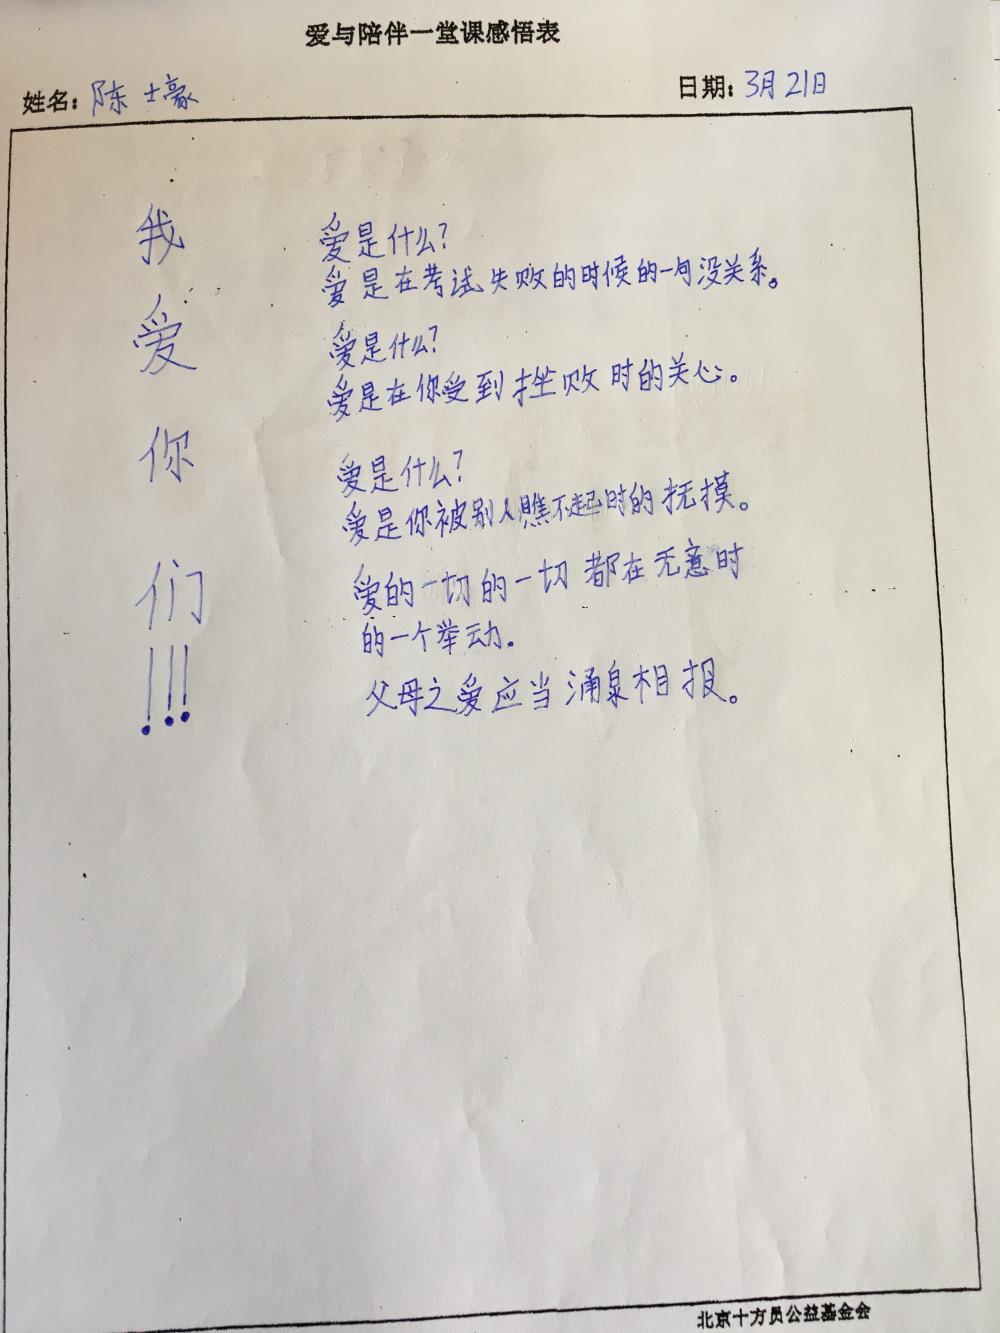 爱与陪伴一堂课感悟表
姓名：陈士豪
日期：3月21日
我爱你们!!!
爱是什么?
爱是在考试失败的时候的一句没关系。
爱是什么?
爱是在你受到挫败时的关心。
爱是什么?
爱是你被别人瞧不起时的抚摸。
爱的一切的一切都在无意时
的一个举动。
父母之爱应当涌泉相报。
北京十方员公益基金会